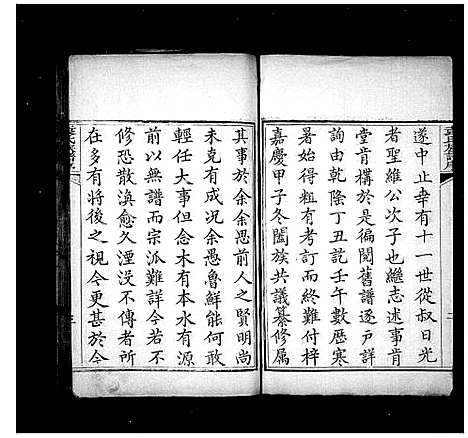 遂中止幸有十一世從叔日光
者聖維公次子也繼志述事肯
堂肯構於是徧閱舊譜逐戶詳
詢由乾隆丁丑訖壬午數歷寒
暑始得粗有考訂而終難付梓
嘉慶甲子冬闔族共議纂修屬
其事於余余愚前人之賢明尚
未克有成况余愚魯鮮能何敢
輕任大事但念木有本水有源
前以無譜而宗派難詳今若不
修恐散渙愈久湮没不傳者所
在多有將後之視今更甚於今
二
三